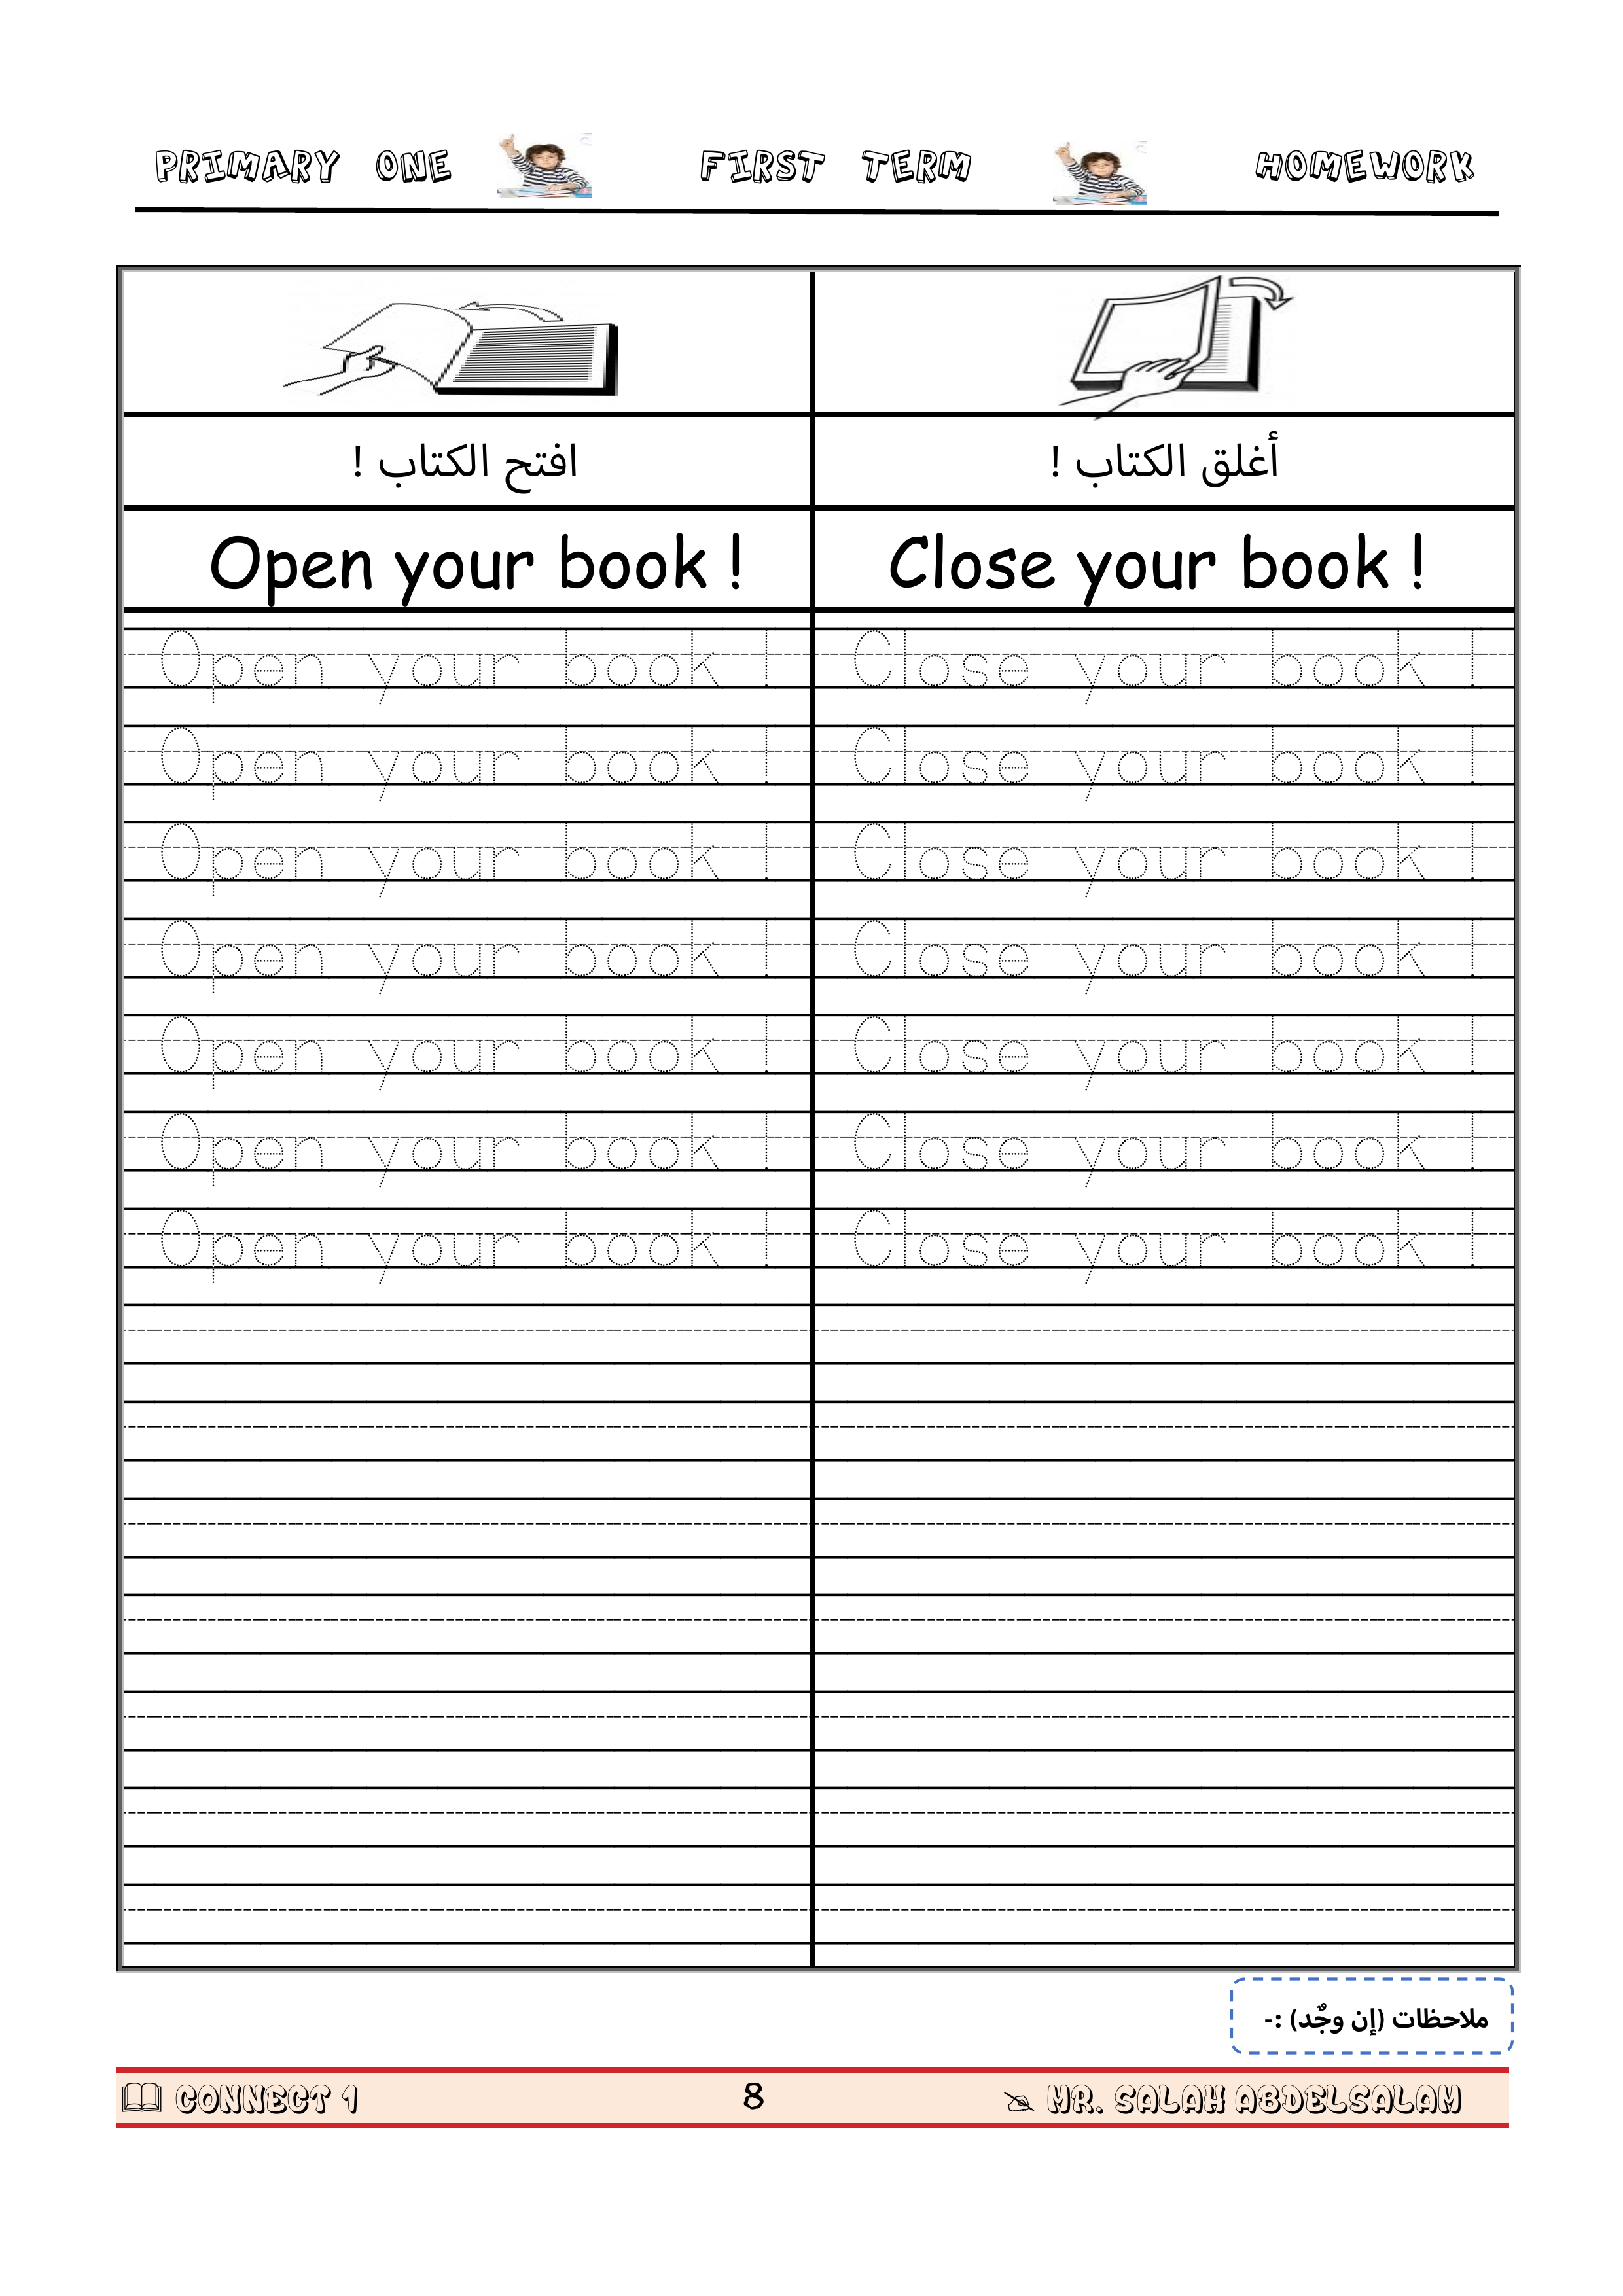 PRIMARY ONE FIRST TERM HOMEWORK
افتح الكتاب ! أغلق الكتاب !
Open your book ! Close your book !
Open your book ! Close your book !
Open your book ! Close your book !
Open your book ! Close your book !
Open your book ! Close your book !
Open your book ! Close your book !
Open your book ! Close your book !
Open your book ! Close your book !
ملاحظات (إن وجٌد) :-
CONNECT 1 8 MR. SALAH ABDELSALAM